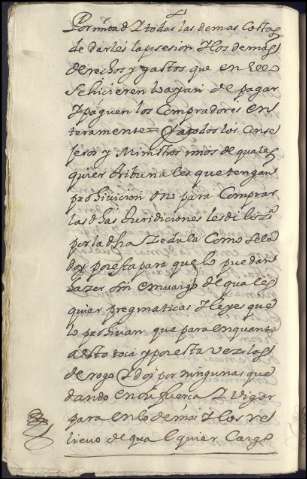 por mitad Y todas las demas costas
de darles la posesion Y los demas
derechos y gastos que en ello
se hicieren los ayan de pagar
Y paguen los compradores en
teramente = Y a todos los conse
jeros y Ministros mios de quales
quier tribunales que tengan
prohivicion para comprar
las dhas Juridiciones les di liza
por la dha Zedula como se la
doy por esta para que lo puedan
hazer sin embargo de quales
quier pregmaticas Y leyes que
lo prohivan que para en quanto
a esto toca y por esta vez las
derogo Y doy por ningunas que
dando en su fuerça Y vigor
para en lo demas Y los re
lievo de qualquier cargo